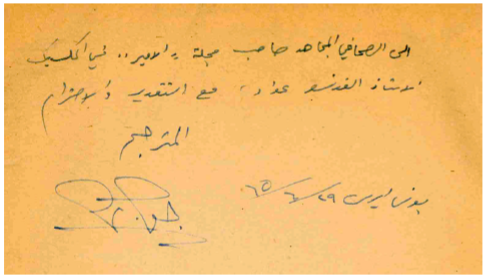 الى الصحافي المجاهد صاحب مجلة «الامير» في المكسيك
الاستاذ الفونسو عواد، مع التقدير والاحترام
المترجم
بونس ايرس ٢٩/٤/٦٥